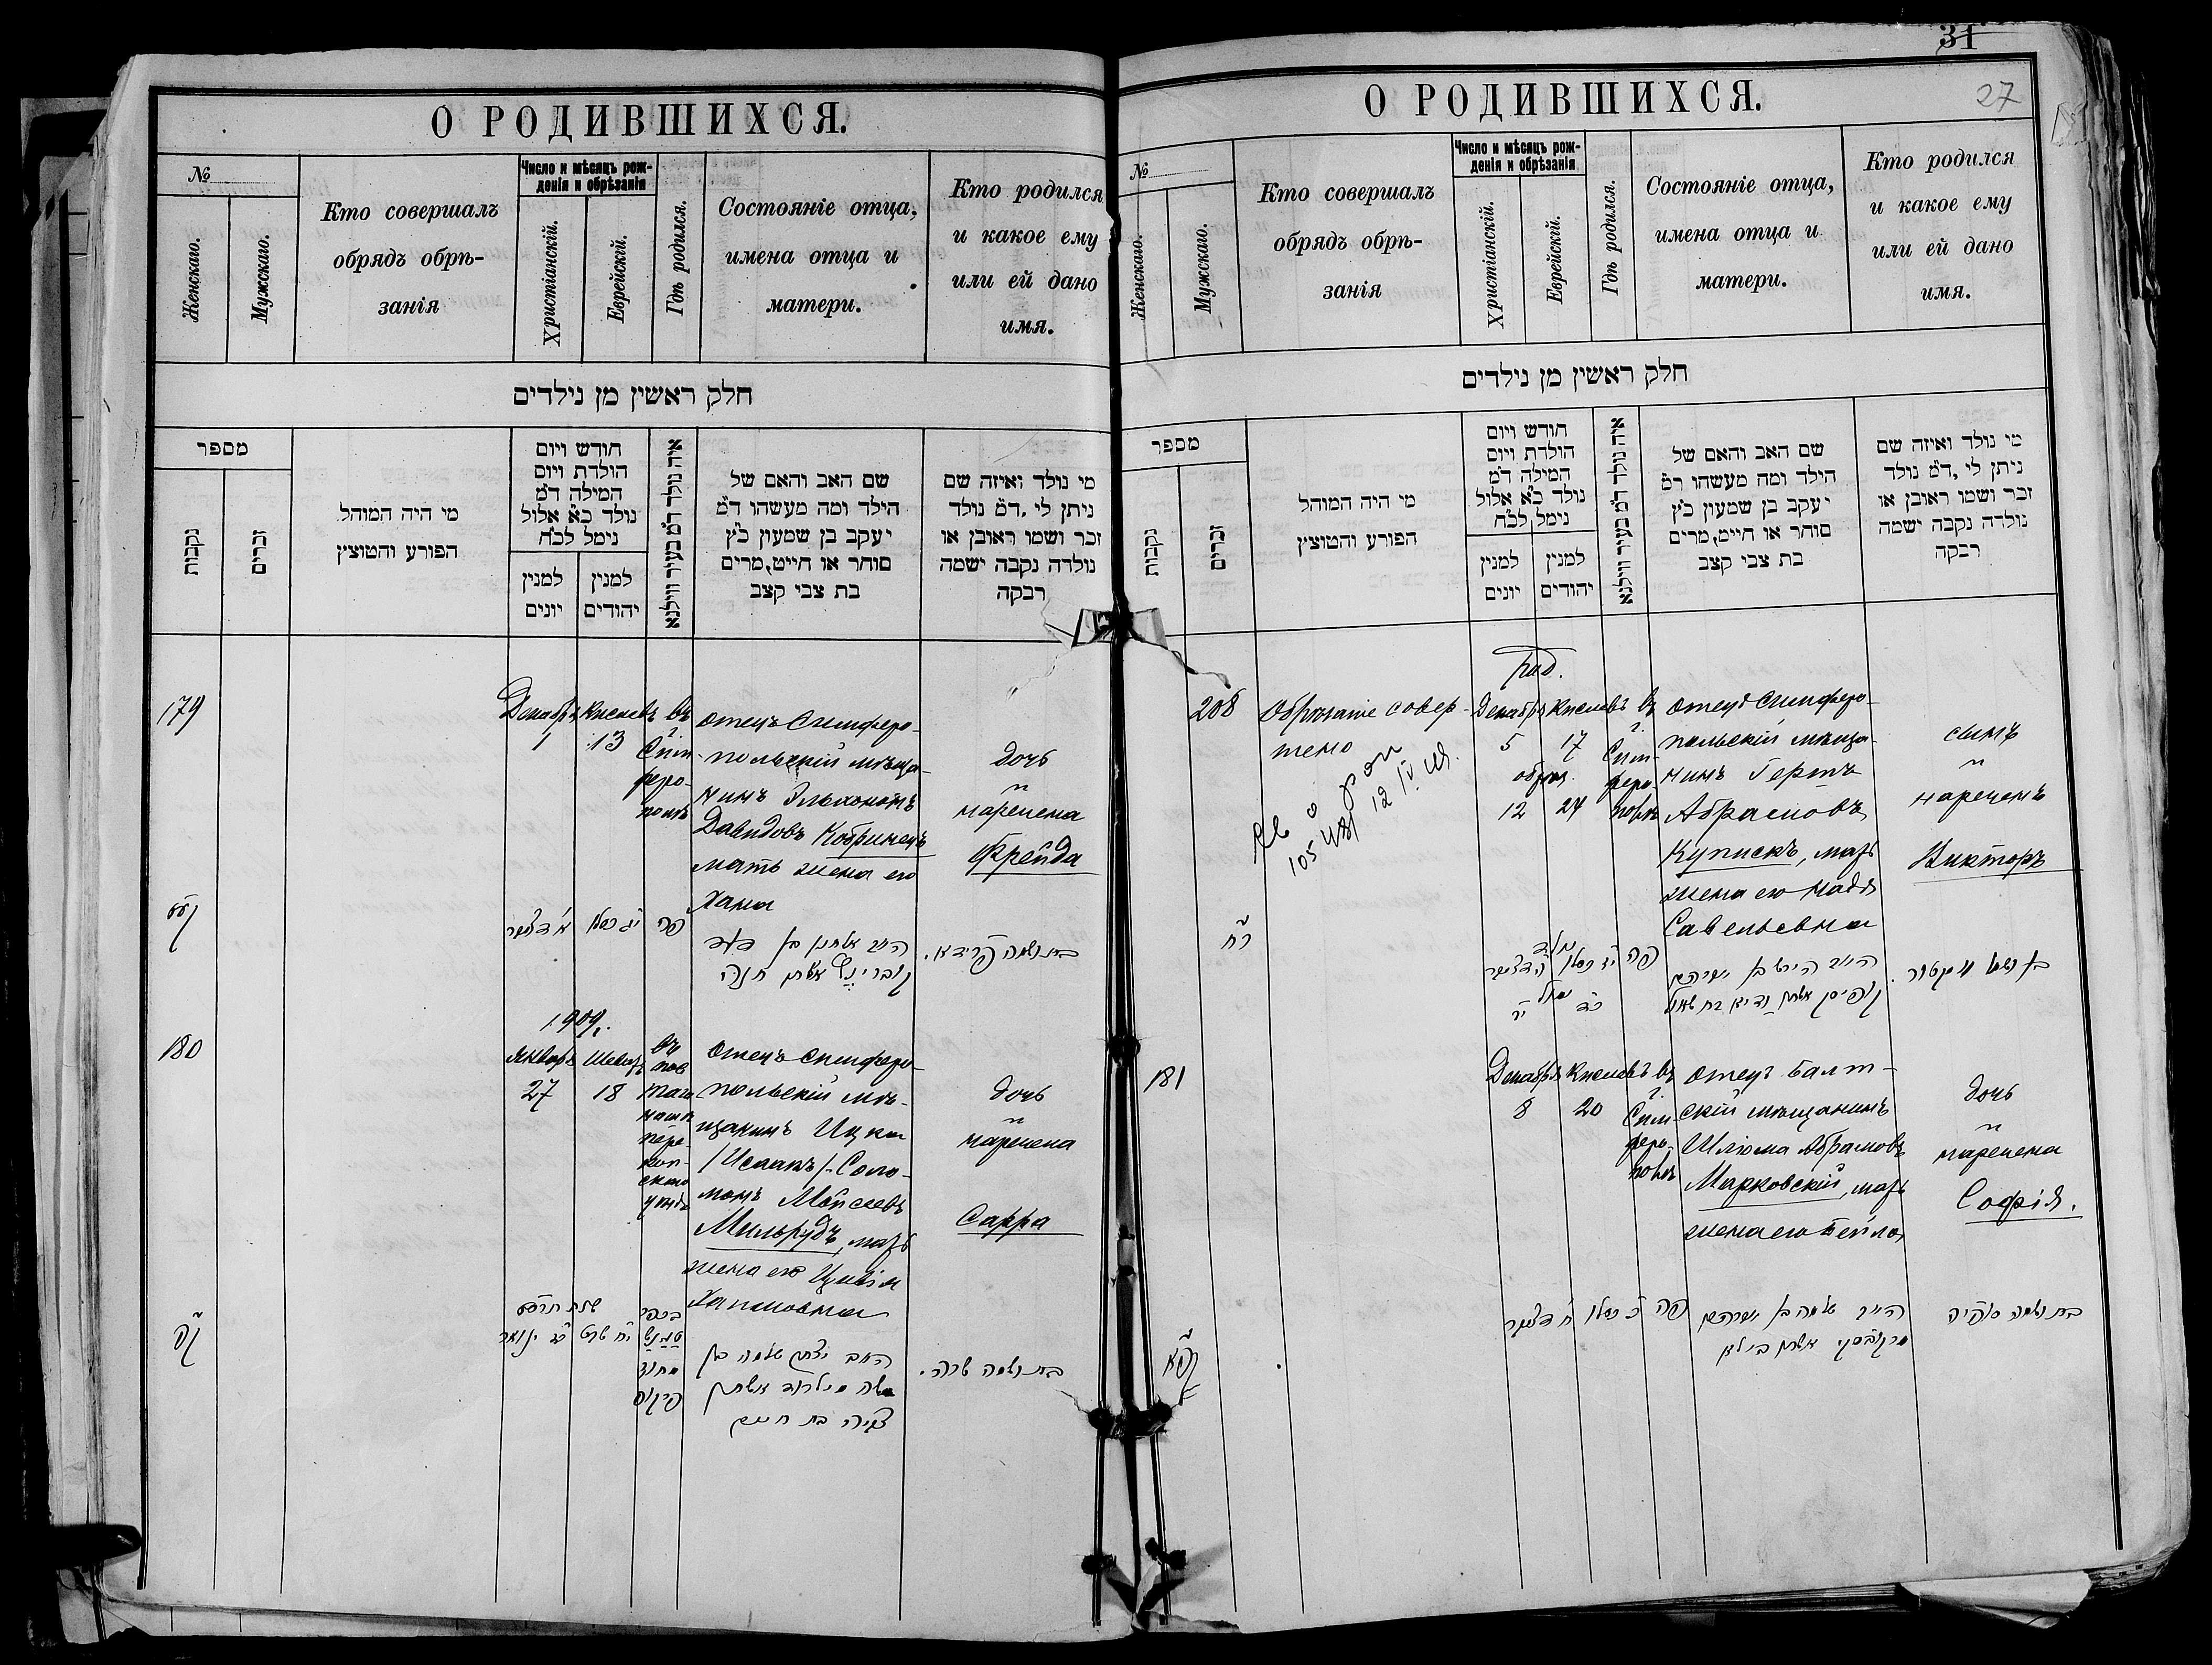 О РОДИВШИХСЯ.
№
Женскаго.
Мужскаго.
Кто совершалъ
обрядъ обрѣ-
занія
Число и мѣсяцъ рож-
денія и обрѣзанія
Христіанскій.
Еврейскій.
Гдѣ родился.
Состояніе отца,
имена отца и
матери.
Кто родился
и какое ему
или ей дано
имя.
חלק ראשין מן נילדים
מספר
נקבות
זכרים
מי היה המוהל
הפורע והטוצץ
חודש ויום
הולדת ויום
המילה ד״מ
נולד כ״א אלול
נימל לכ״ח
למנין
יונים
למנין
יהודים
איה נולד ד״מ בעיר ווילנא
שם האב והאם של
הילד ומה מעשהו ד״מ
יעקב בן שמעון כ״ץ
סוחר או חייט, מרים
בת צבי קצב
מי נולד ואיזה שם
ניתן לי, ד״מ נולד
זכר ושמו ראובן או
נולדה נקבה ישמה
רבקה
179
Декабрь
1
Кислевъ
13
въ
г.
Сим-
феро-
полѣ
Отецъ Симферо-
польскій мѣща-
нинъ Эльхонанъ
Давидовъ Кобринецъ
мать жена его
Хана
дочь
наречена
Фрейда
פה
בת ושמה פריידא.
1909 г.
180
Январь
27
Шеватъ
18
въ
Отецъ Симферо-
польскій мѣ-
щанинъ Ицка
/Исаакъ/-Соло-
монъ Мойсеевъ
Мильрудъ, мать
жена его Цивія
Хаимовна
дочь
наречена
Сарра
שנת תרס״ט
האב יצחק שלמה בן
משה מילרוד אשתו
צביה בת חיים
בת ושמה שרה.
31
27
О РОДИВШИХСЯ.
№
Женскаго.
Мужскаго.
Кто совершалъ
обрядъ обрѣ-
занія
Число и мѣсяцъ рож-
денія и обрѣзанія
Христіанскій.
Еврейскій.
Гдѣ родился.
Состояніе отца,
имена отца и
матери.
Кто родился
и какое ему
или ей дано
имя.
חלק ראשין מן נילדים
מספר
נקבות
זכרים
מי היה המוהל
הפורע והטוצץ
חודש ויום
הולדת ויום
המילה ד״מ
נולד כ״א אלול
נימל לכ״ח
למנין
יונים
למנין
יהודים
איה נולד ד״מ בעיר ווילנא
שם האב והאם של
הילד ומה מעשהו ד״מ
יעקב בן שמעון כ״ץ
סוחר או חייט, מרים
בת צבי קצב
מי נולד ואיזה שם
ניתן לי, ד״מ נולד
זכר ושמו ראובן או
נולדה נקבה ישמה
רבקה
208
Обрѣзаніе совер-
шено
род.
Декабрь
5
обрѣз.
12
Кислевъ
17
24
въ
г.
Сим-
феро-
полѣ
Отецъ Симферо-
польскій мѣща-
нинъ Гершъ
Абрамовъ
Купискъ, мать
жена его Надя
Савельевна
сынъ
нареченъ
Викторъ
ר״ח
פה
בן ושמו וויקטור.
181
Декабрь
8
Кислевъ
20
въ
г.
Сим-
феро-
полѣ
Отецъ Балт-
скій мѣщанинъ
Шлюма Абрамовъ
Марковскій, мать
жена его Бейла
дочь
наречена
Софія.
פה
בת ושמה סופיה